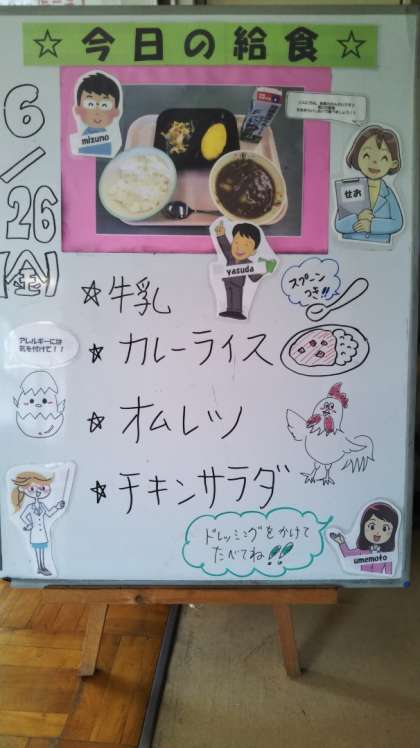 ☆今日の給食☆
6/26(金)
mizuno
せお
yasuda
スプーン
つき!!
☆牛乳
☆カレーライス
アレルギーには
気を付けて!!
☆オムレツ
☆チキンサラダ
ドレッシングをかけて
たべてね!!
umemoto